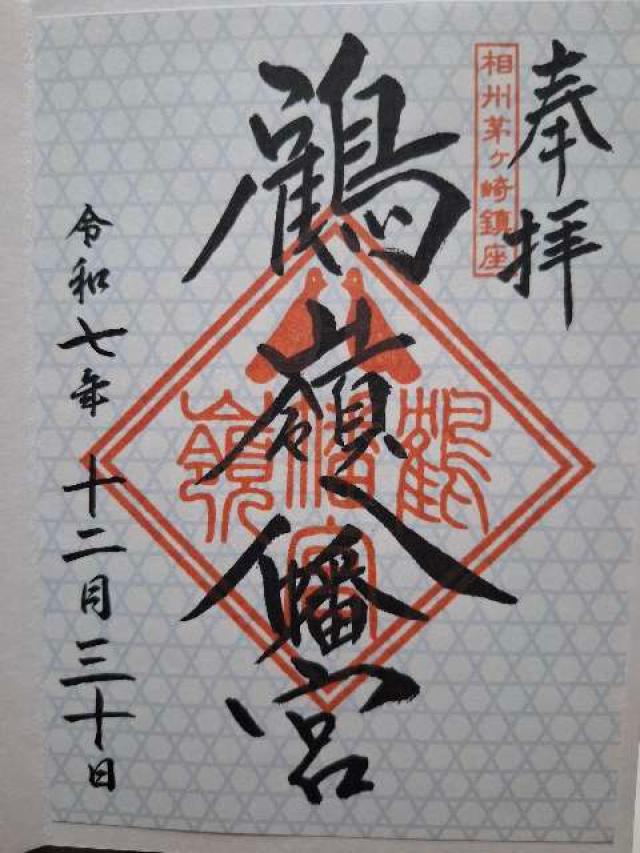 奉拝
相州茅ヶ崎鎮座
鶴嶺八幡宮
鶴
八幡宮
嶺
令和七年 十二月三十日